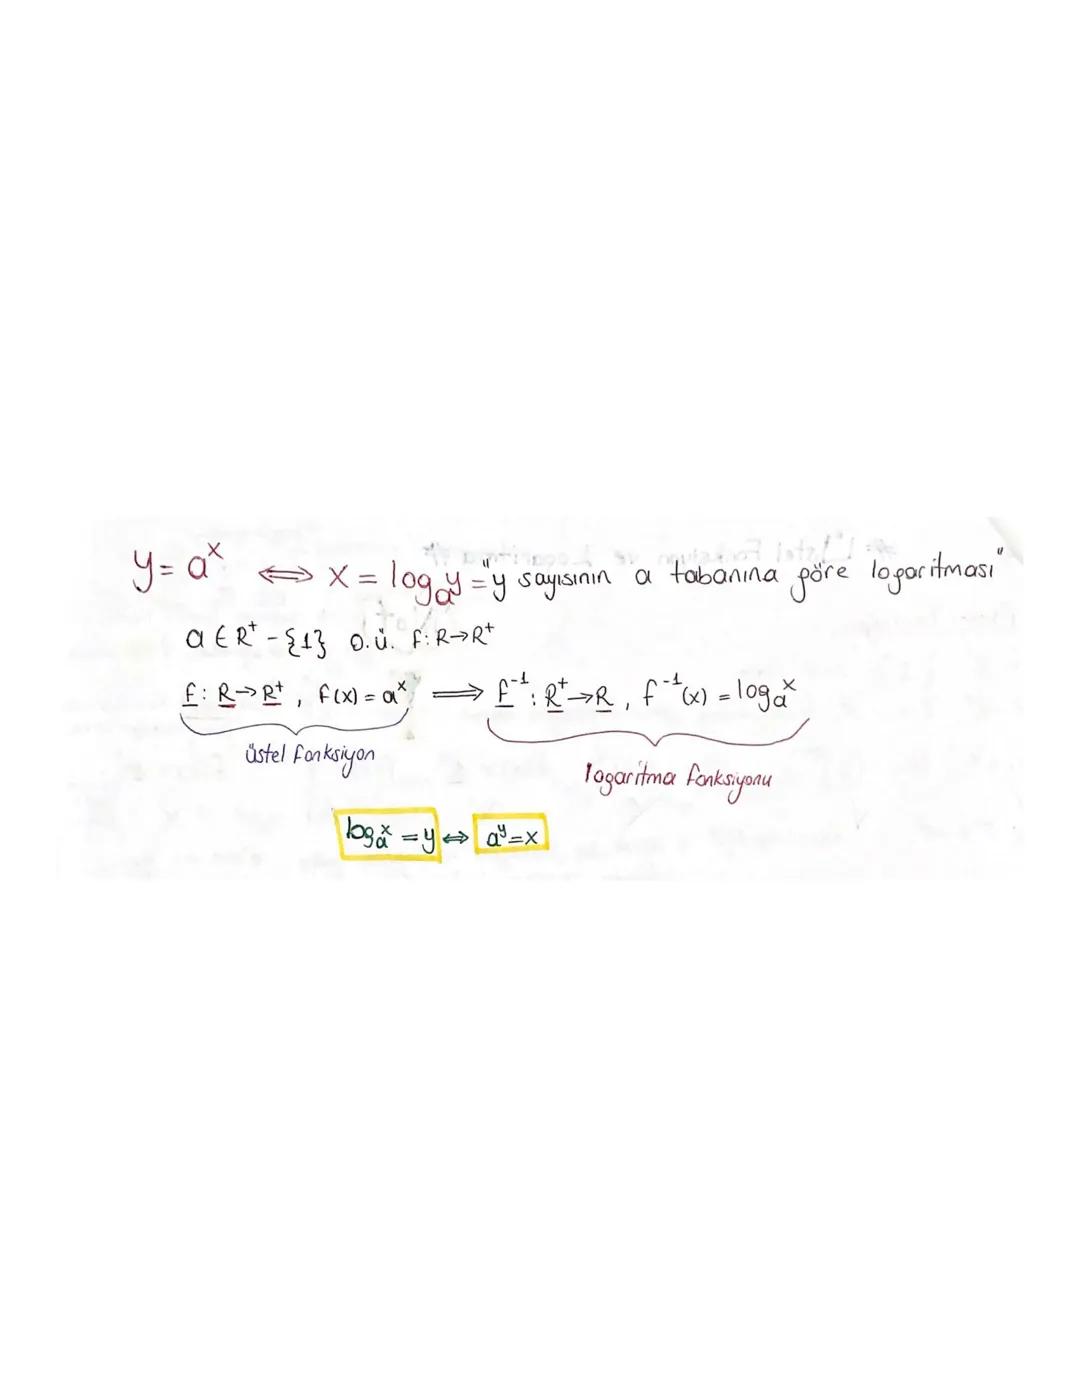 y = aˣ ⟺ x = logₐy = "y sayısının a tabanına göre logaritması"
a ∈ R⁺ - {1} o.ü. f: R→R⁺
f: R→R⁺, f(x) = aˣ ⟹ f⁻¹: R⁺→R, f⁻¹(x) = logₐx
üstel fonksiyon
logaritma fonksiyonu
logₐx = y ⇔ aʸ = x